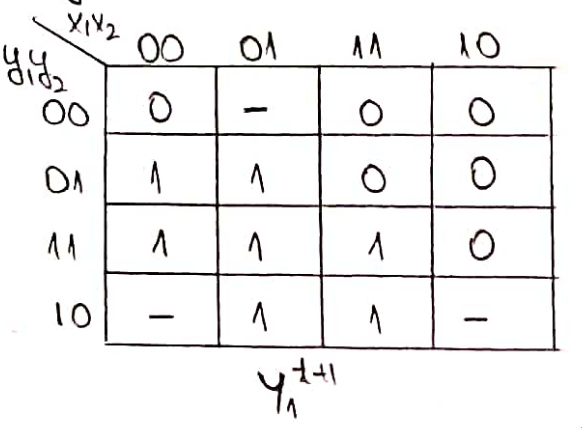 x₁x₂ 00 01 11 10
y₁y₂
00 0 – 0 0
01 1 1 0 0
11 1 1 1 0
10 – 1 1 –
Y₁ᵗ⁺¹